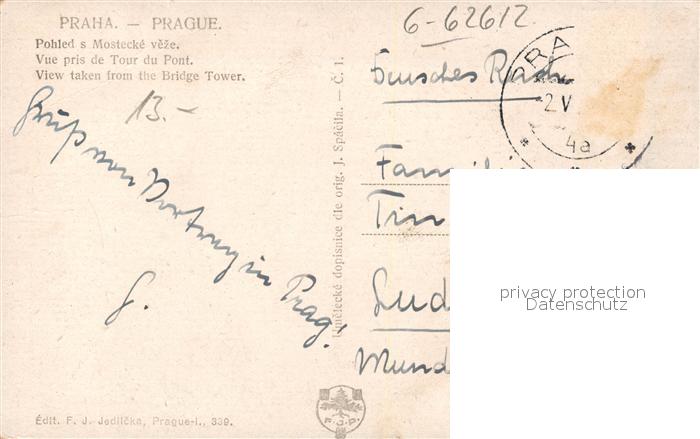 PRAHA. — PRAGUE.
Pohled s Mostecké věže.
Vue pris de Tour du Pont.
View taken from the Bridge Tower.
13.-
Gruß von Vortrag in Prag!
G.
Édit. F. J. Jedlička, Prague-I., 339.
Umělecké dopisnice dle orig. J. Spáčila. — Č. 1.
F. J. P.
6-62612
PRA
-2.V
4a
Deutsches Reich
Famili
Tin
Lud
Mund
privacy protection
Datenschutz